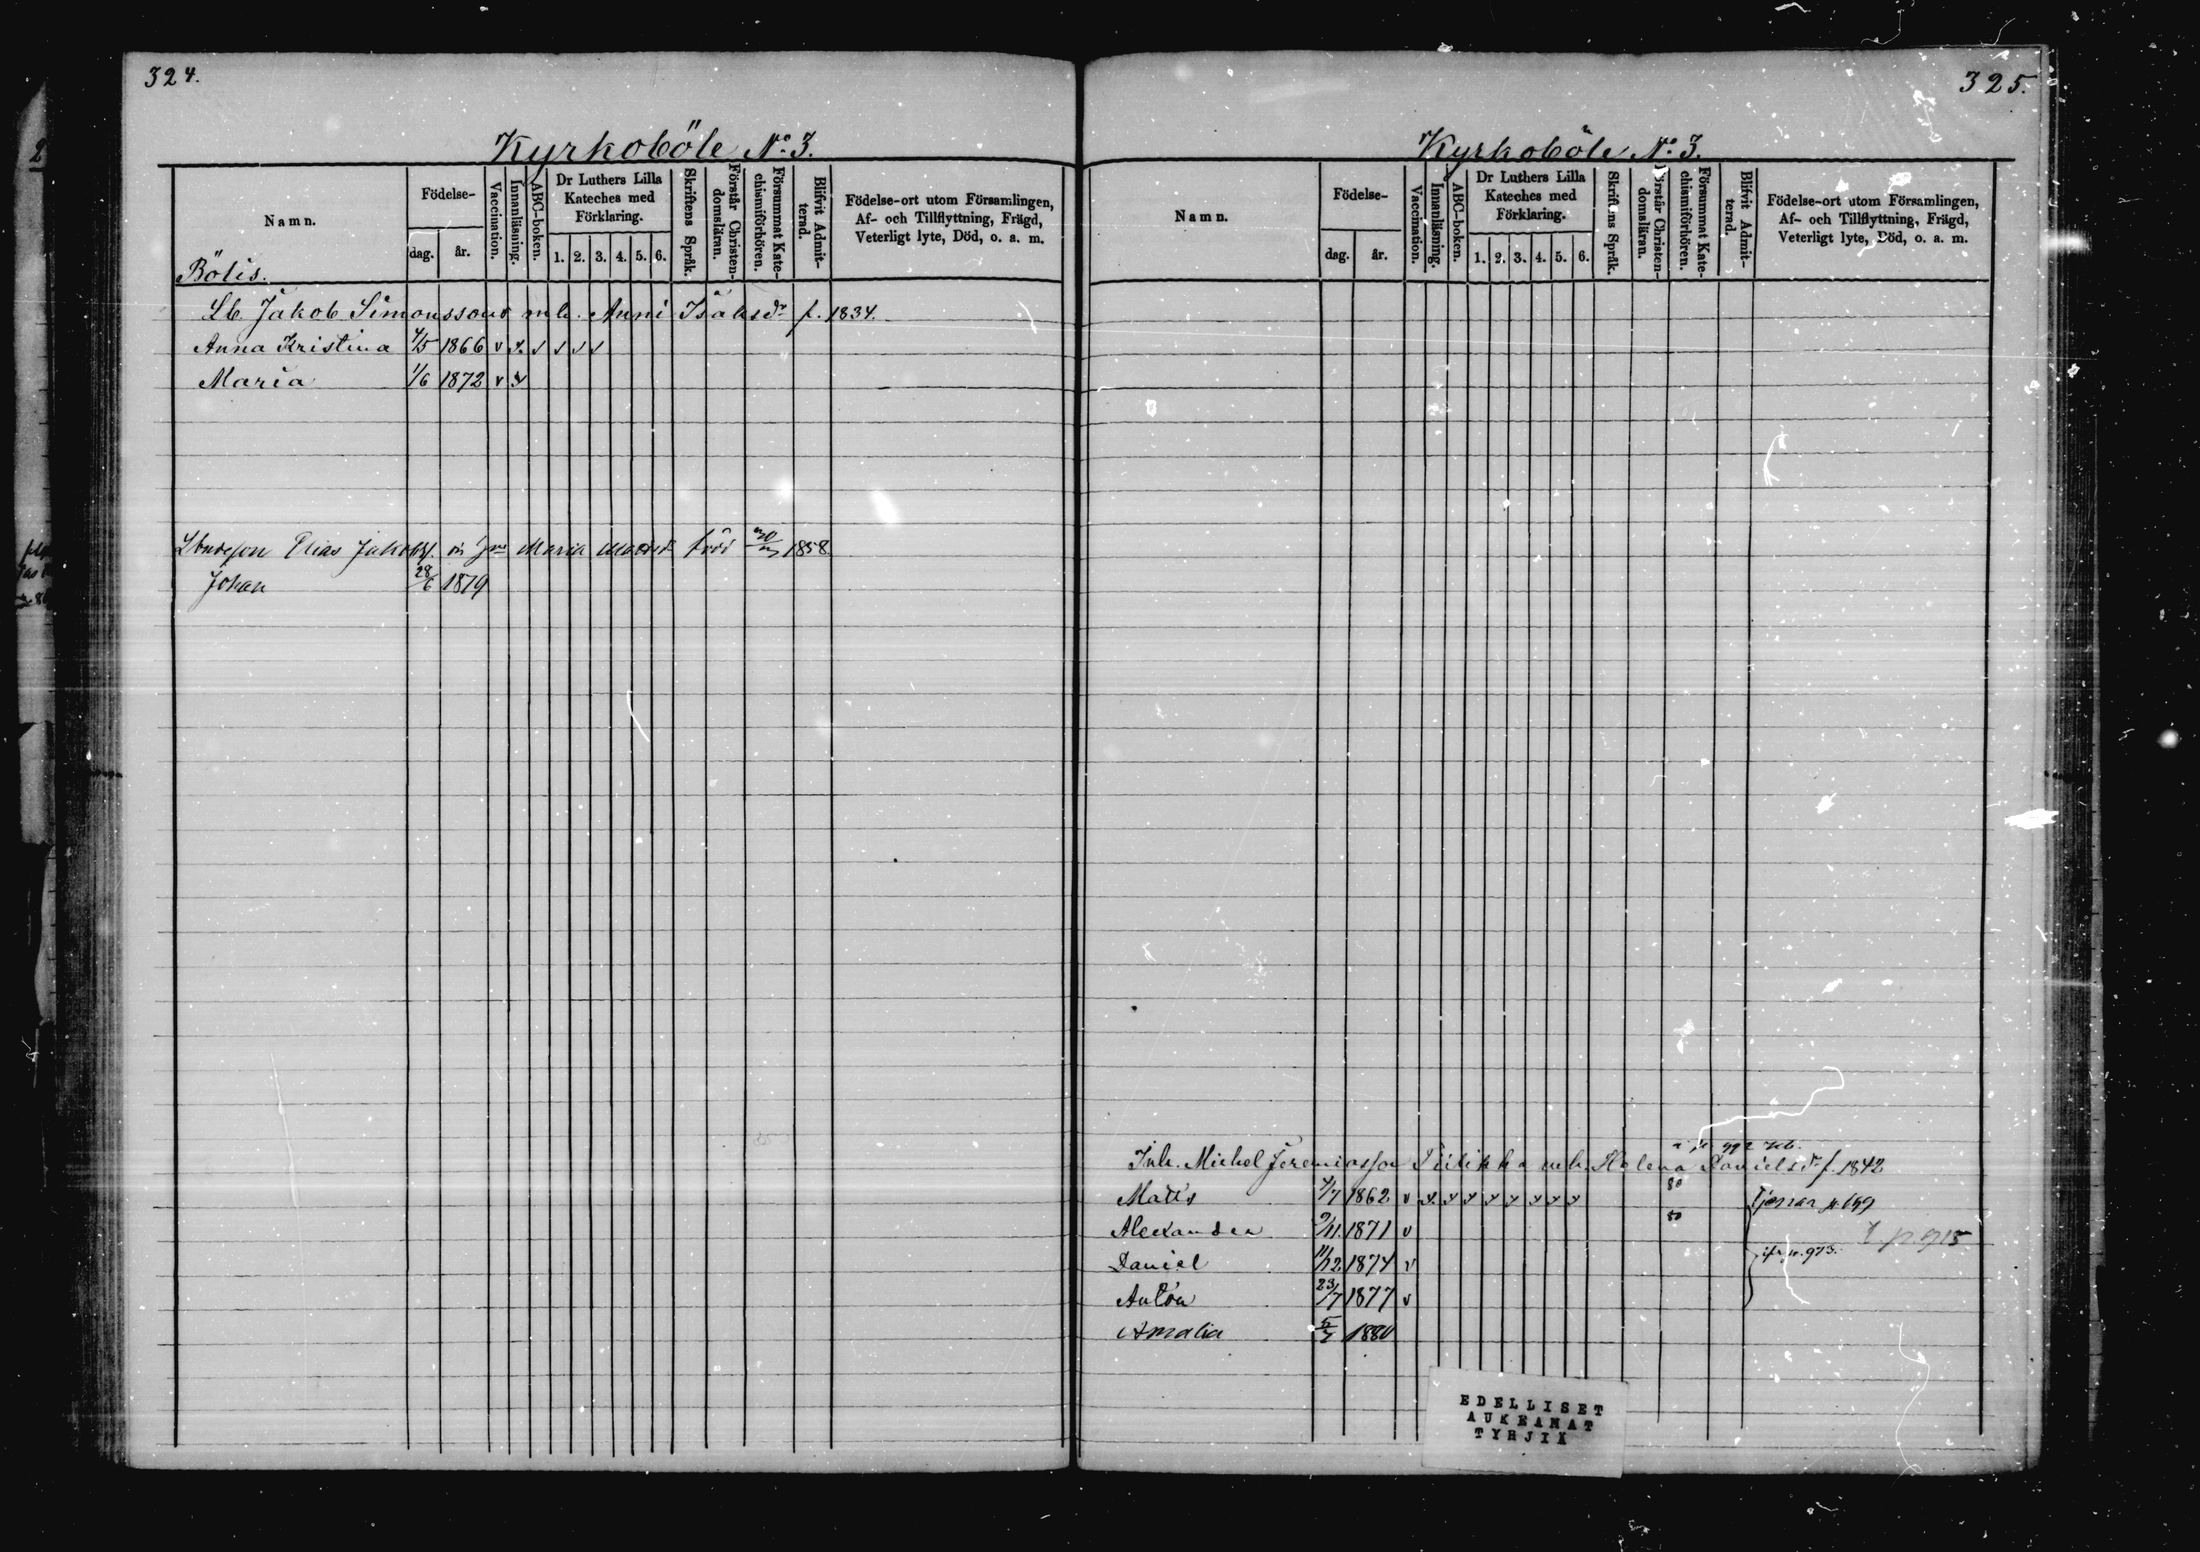 324.
Kyrkoböle No. 3.
Namn.
Födelse-
dag. år.
Vaccination.
Innanläsning.
ABC-boken.
Dr Luthers Lilla
Kateches med
Förklaring.
1. 2. 3. 4. 5. 6.
Skriftens Språk.
Förstår Christen-
domsläran.
Försummat Kate-
chismiförhören.
Blifvit Admit-
terad.
Födelse-ort utom Församlingen,
Af- och Tillflyttning, Frägd,
Veterligt lyte, Död, o. a. m.
Bölis.
Lb. Jakob Simonsson mh. Anni Isaksdr f. 1834.
Anna Kristina 4/5 1866 v
Maria 1/6 1872 v
Elias Jakobs. Maria född 1858
Johan 28/6 1879
325.
Kyrkoböle No. 3.
Namn.
Födelse-
dag. år.
Vaccination.
Innanläsning.
ABC-boken.
Dr Luthers Lilla
Kateches med
Förklaring.
1. 2. 3. 4. 5. 6.
Skriftens Språk.
Förstår Christen-
domsläran.
Försummat Kate-
chismiförhören.
Blifvit Admit-
terad.
Födelse-ort utom Församlingen,
Af- och Tillflyttning, Frägd,
Veterligt lyte, Död, o. a. m.
Inh. Michel Jeremiasson mh. Helena Danielsdr f. 1842
Matts 4/7 1862 v 80 Tjenar p.
Alexander 9/11. 1871 v 80
Daniel 11/12. 1874 v p. 973.
Anton 23/7 1877 v
Amalia 1880
EDELLISET
AUKEAMAT
TYHJIÄ